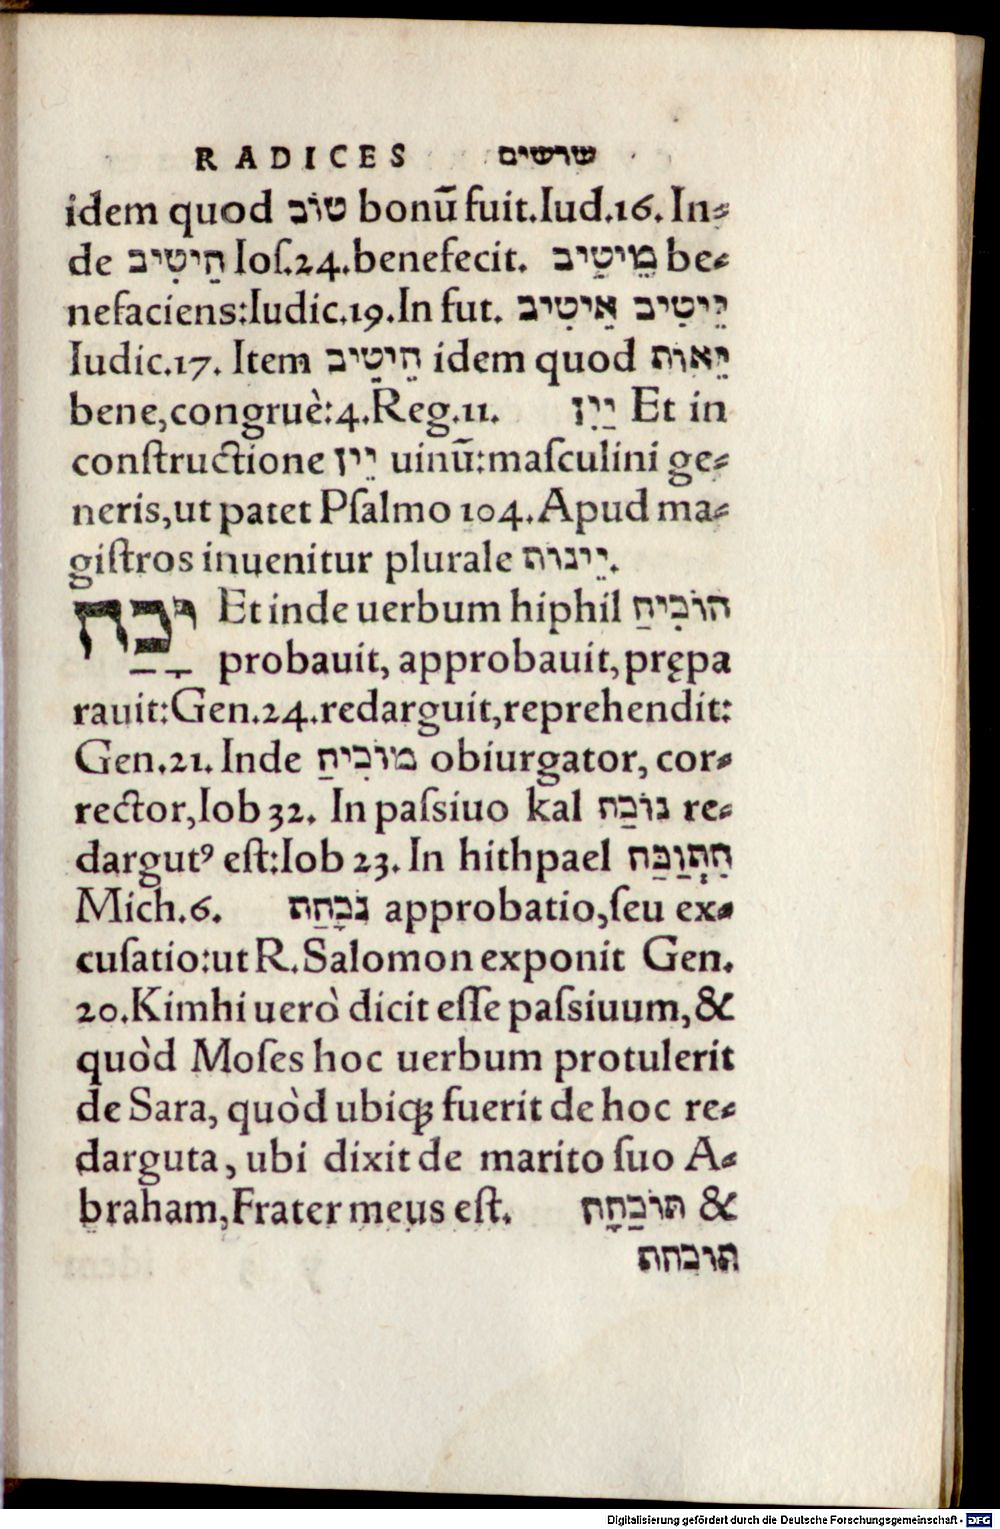 RADICES שרשים
idem quod טוֹב bonũ fuit.Iud.16. In-
de הֵיטִיב Ioſ.24.benefecit. מֵיטִיב be-
nefaciens:Iudic.19.In fut. יֵיטִיב אֵיטִיב
Iudic.17. Item הֵיטִיב idem quod יֵאוֹת
bene,congruè:4.Reg.11. יַיִן Et in
conſtructione יֵין uinũ:maſculini ge-
neris,ut patet Pſalmo 104.Apud ma-
giſtros inuenitur plurale יֵינוֹת.
יָכַח Et inde uerbum hiphil הוֹכִיחַ
probauit, approbauit,prępa
rauit:Gen.24.redarguit,reprehendit:
Gen.21. Inde מוֹכִיחַ obiurgator, cor-
rector,Iob 32. In paſsiuo kal נוֹכַח re-
dargutꝰ eſt:Iob 23. In hithpael הִתְוַכַּח
Mich.6. נֹכָחַת approbatio,ſeu ex-
cuſatio:ut R.Salomon exponit Gen.
20.Kimhi uerò dicit eſſe paſsiuum,&
quòd Moſes hoc uerbum protulerit
de Sara, quòd ubiqꝫ fuerit de hoc re-
darguta, ubi dixit de marito ſuo A-
braham,Frater meus eſt. תּוֹכַחַת &
תוכחת
Digitalisierung gefördert durch die Deutsche Forschungsgemeinschaft - DFG